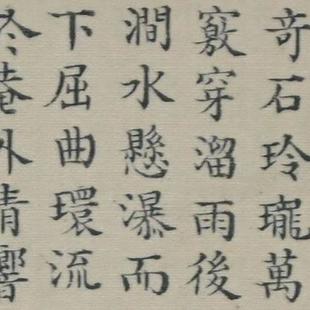 奇石玲瓏萬
竅穿溜雨後
澗水懸瀑而
下屈曲環流
外清響